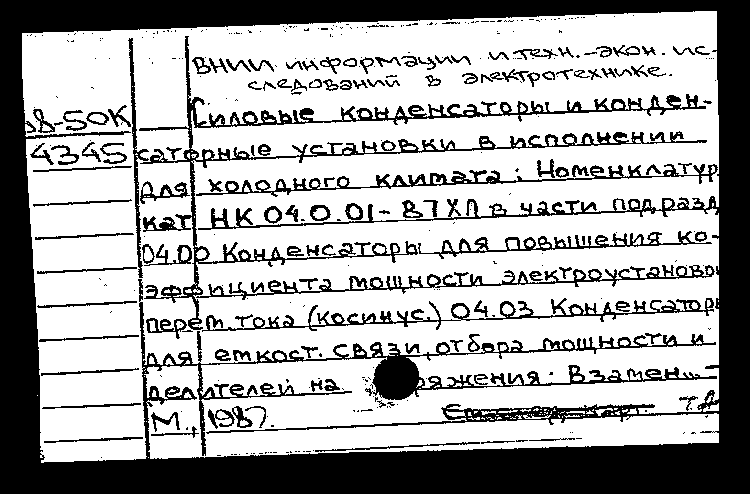 ВНИИ информации и техн.-экон. ис-
следований в электротехнике.
8-50К
Силовые конденсаторы и конден-
4345
саторные установки в исполнении
для холодного климата: Номенклатур
кат НК 04.0.01-87ХЛ в части подразд
04.00 Конденсаторы для повышения ко-
эффициента мощности электроустаново
перем. тока (косинус.) 04.03 Конденсатор
для емкост. связи, отбора мощности и
делителей на ряжения: Взамен
М., 1987.